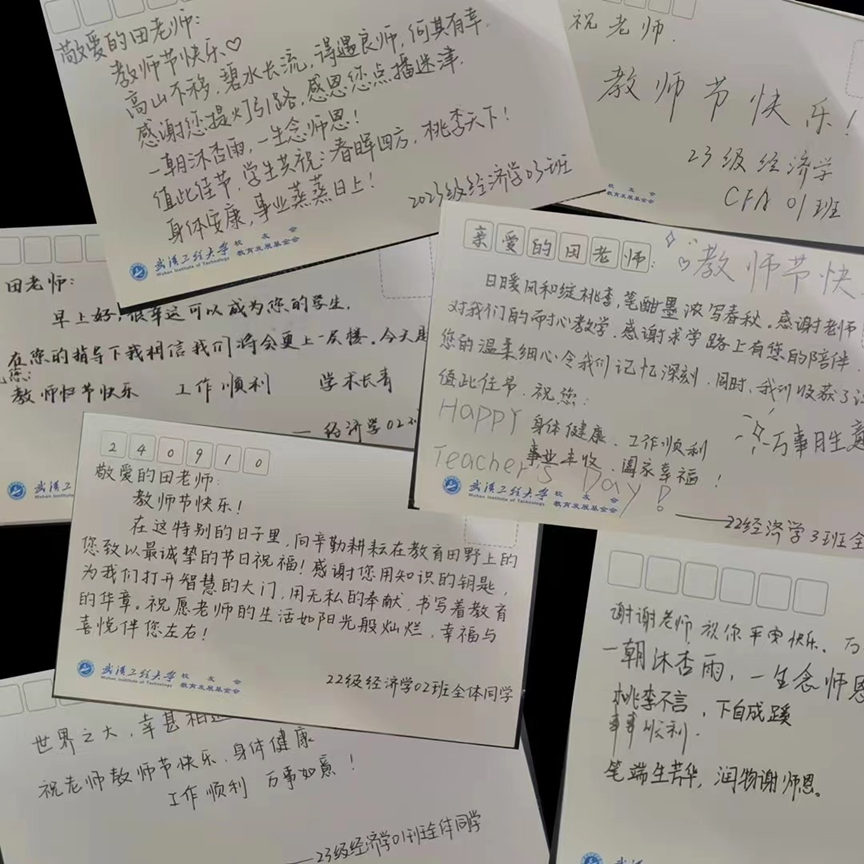 敬爱的田老师:
教师节快乐♡
高山不移,碧水长流,得遇良师,何其有幸.
感谢您提灯引路,感恩您点播迷津.
一朝沐杏雨,一生念师恩!
值此佳节,学生共祝:春晖四方,桃李天下!
身体安康,事业蒸蒸日上!
2023级经济学03班
武汉工程大学 校友会
Wuhan Institute of Technology 教育发展基金会
祝老师.
教师节快乐!
23级经济学
CFA 01班
田老师:
早上好,很幸运可以成为您的学生.
在您的指导下我相信我们将会更上一层楼.今天是
祝您:
教师节快乐 工作顺利 学术长青
——经济学02班
武汉工程大学
Wuhan Institute
亲爱的田老师:
教师节快
日暖风和绽桃李,笔酣墨浓写春秋。感谢老师
对我们的耐心教学,感谢求学路上有您的陪伴.
您的温柔细心令我们记忆深刻.同时,我们收获了
值此佳节,祝您:
Happy
身体健康、工作顺利
事业丰收、阖家幸福!
万事胜意
Teacher's Day!
——22经济学3班全
武汉工程大学 校友会
Wuhan Institute of Technology 教育发展基金会
240910
敬爱的田老师:
教师节快乐!
在这特别的日子里,向辛勤耕耘在教育田野上的
您致以最诚挚的节日祝福!感谢您用知识的钥匙,
为我们打开智慧的大门,用无私的奉献,书写着教育
的华章。祝愿老师的生活如阳光般灿烂,幸福与
喜悦伴您左右!
22级经济学02班全体同学
武汉工程大学 校友会
Wuhan Institute of Technology 教育发展基金会
世界之大,幸甚相遇
祝老师教师节快乐、身体健康
工作顺利 万事如意!
——23级经济学01班全体同学
谢谢老师 祝你平安快乐、万
一朝沐杏雨,一生念师恩
桃李不言,下自成蹊
事事顺利.
笔端生芳华,润物谢师恩。
武汉工